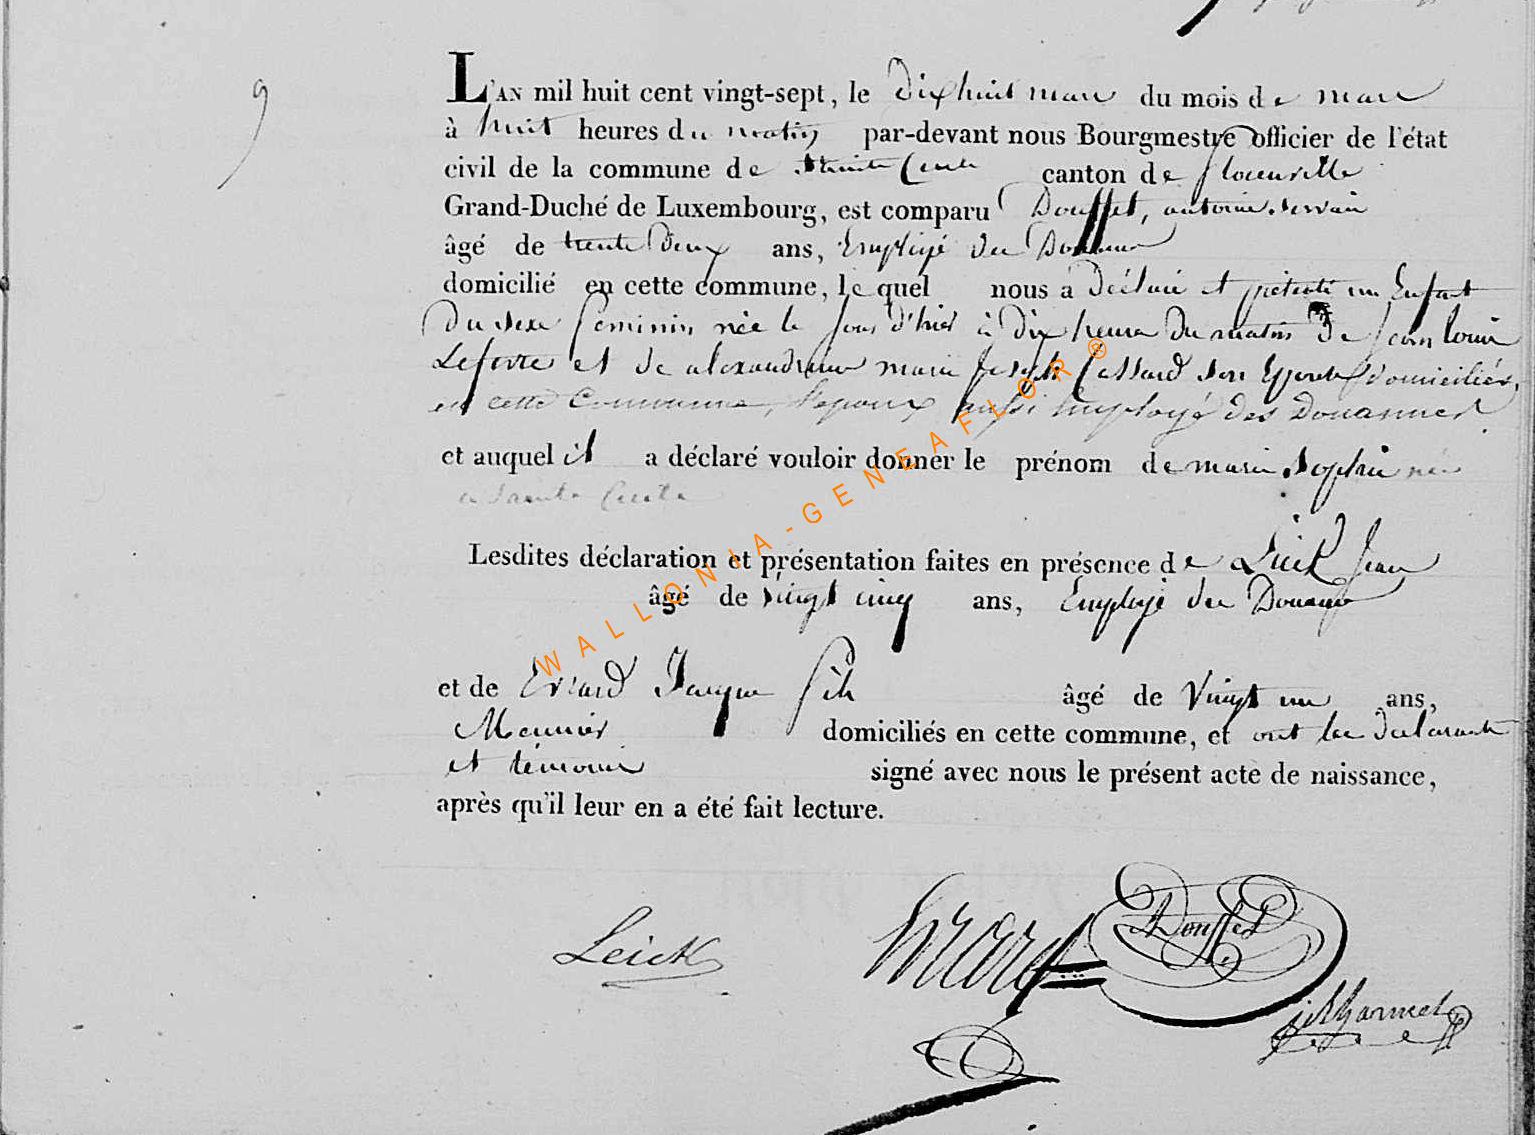 9
L'AN mil huit cent vingt-sept, le Dix huit mars du mois de mars
à huit heures du matin par-devant nous Bourgmestre officier de l'état
civil de la commune de Sainte Cecile canton de florenville
Grand-Duché de Luxembourg, est comparu Dousset, antoine
âgé de trente Deux ans, Employé des Douanes
domicilié en cette commune, lequel nous a Déclaré et présenté un Enfant
Du sexe feminin née le Jour d'hier à Dix heures Du matin De Jean louis
Lefevre et de alexandrine marie Joseph Cassard son Epouse domiciliés,
en cette Commune, l'epoux aussi Employé des Douannes.
et auquel il a déclaré vouloir donner le prénom de marie Sophie née
a Sainte Cecile
Lesdites déclaration et présentation faites en présence de Leick Jean
âgé de vingt cinq ans, Employé des Douanes
et de Evrard Jacque fils âgé de Vingt un ans,
Meunier domiciliés en cette commune, et ont les declarants
et témoins signé avec nous le présent acte de naissance,
après qu'il leur en a été fait lecture.
Leick Evrard Dousset
WALLONIA-GENEAFLOR®